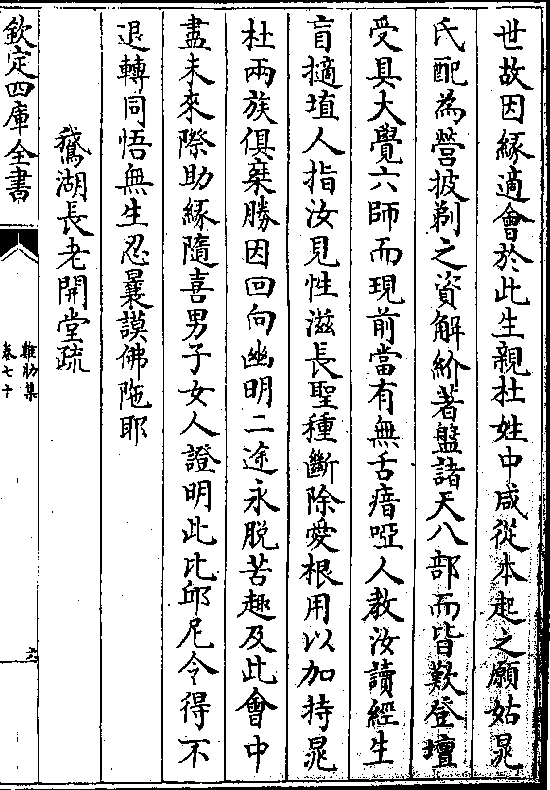 世故因緣適會於此生親杜姓中咸從本起之願姑晁
氏配為營披剃之資解紒著盤諸天八部而皆歎登壇
受具大覺六師而現前當有無舌瘖啞人教汝讀經生
盲擿埴人指汝見性滋長聖種斷除愛根用以加持晁
杜兩族俱棄勝因回向幽明二途永脫苦趣及此會中
盡未來際助緣隨喜男子女人證明此比邱尼令得不
退轉同悟無生忍曩謨佛陁耶
鵞湖長老開堂疏
欽定四庫全書
雞肋集
卷七十